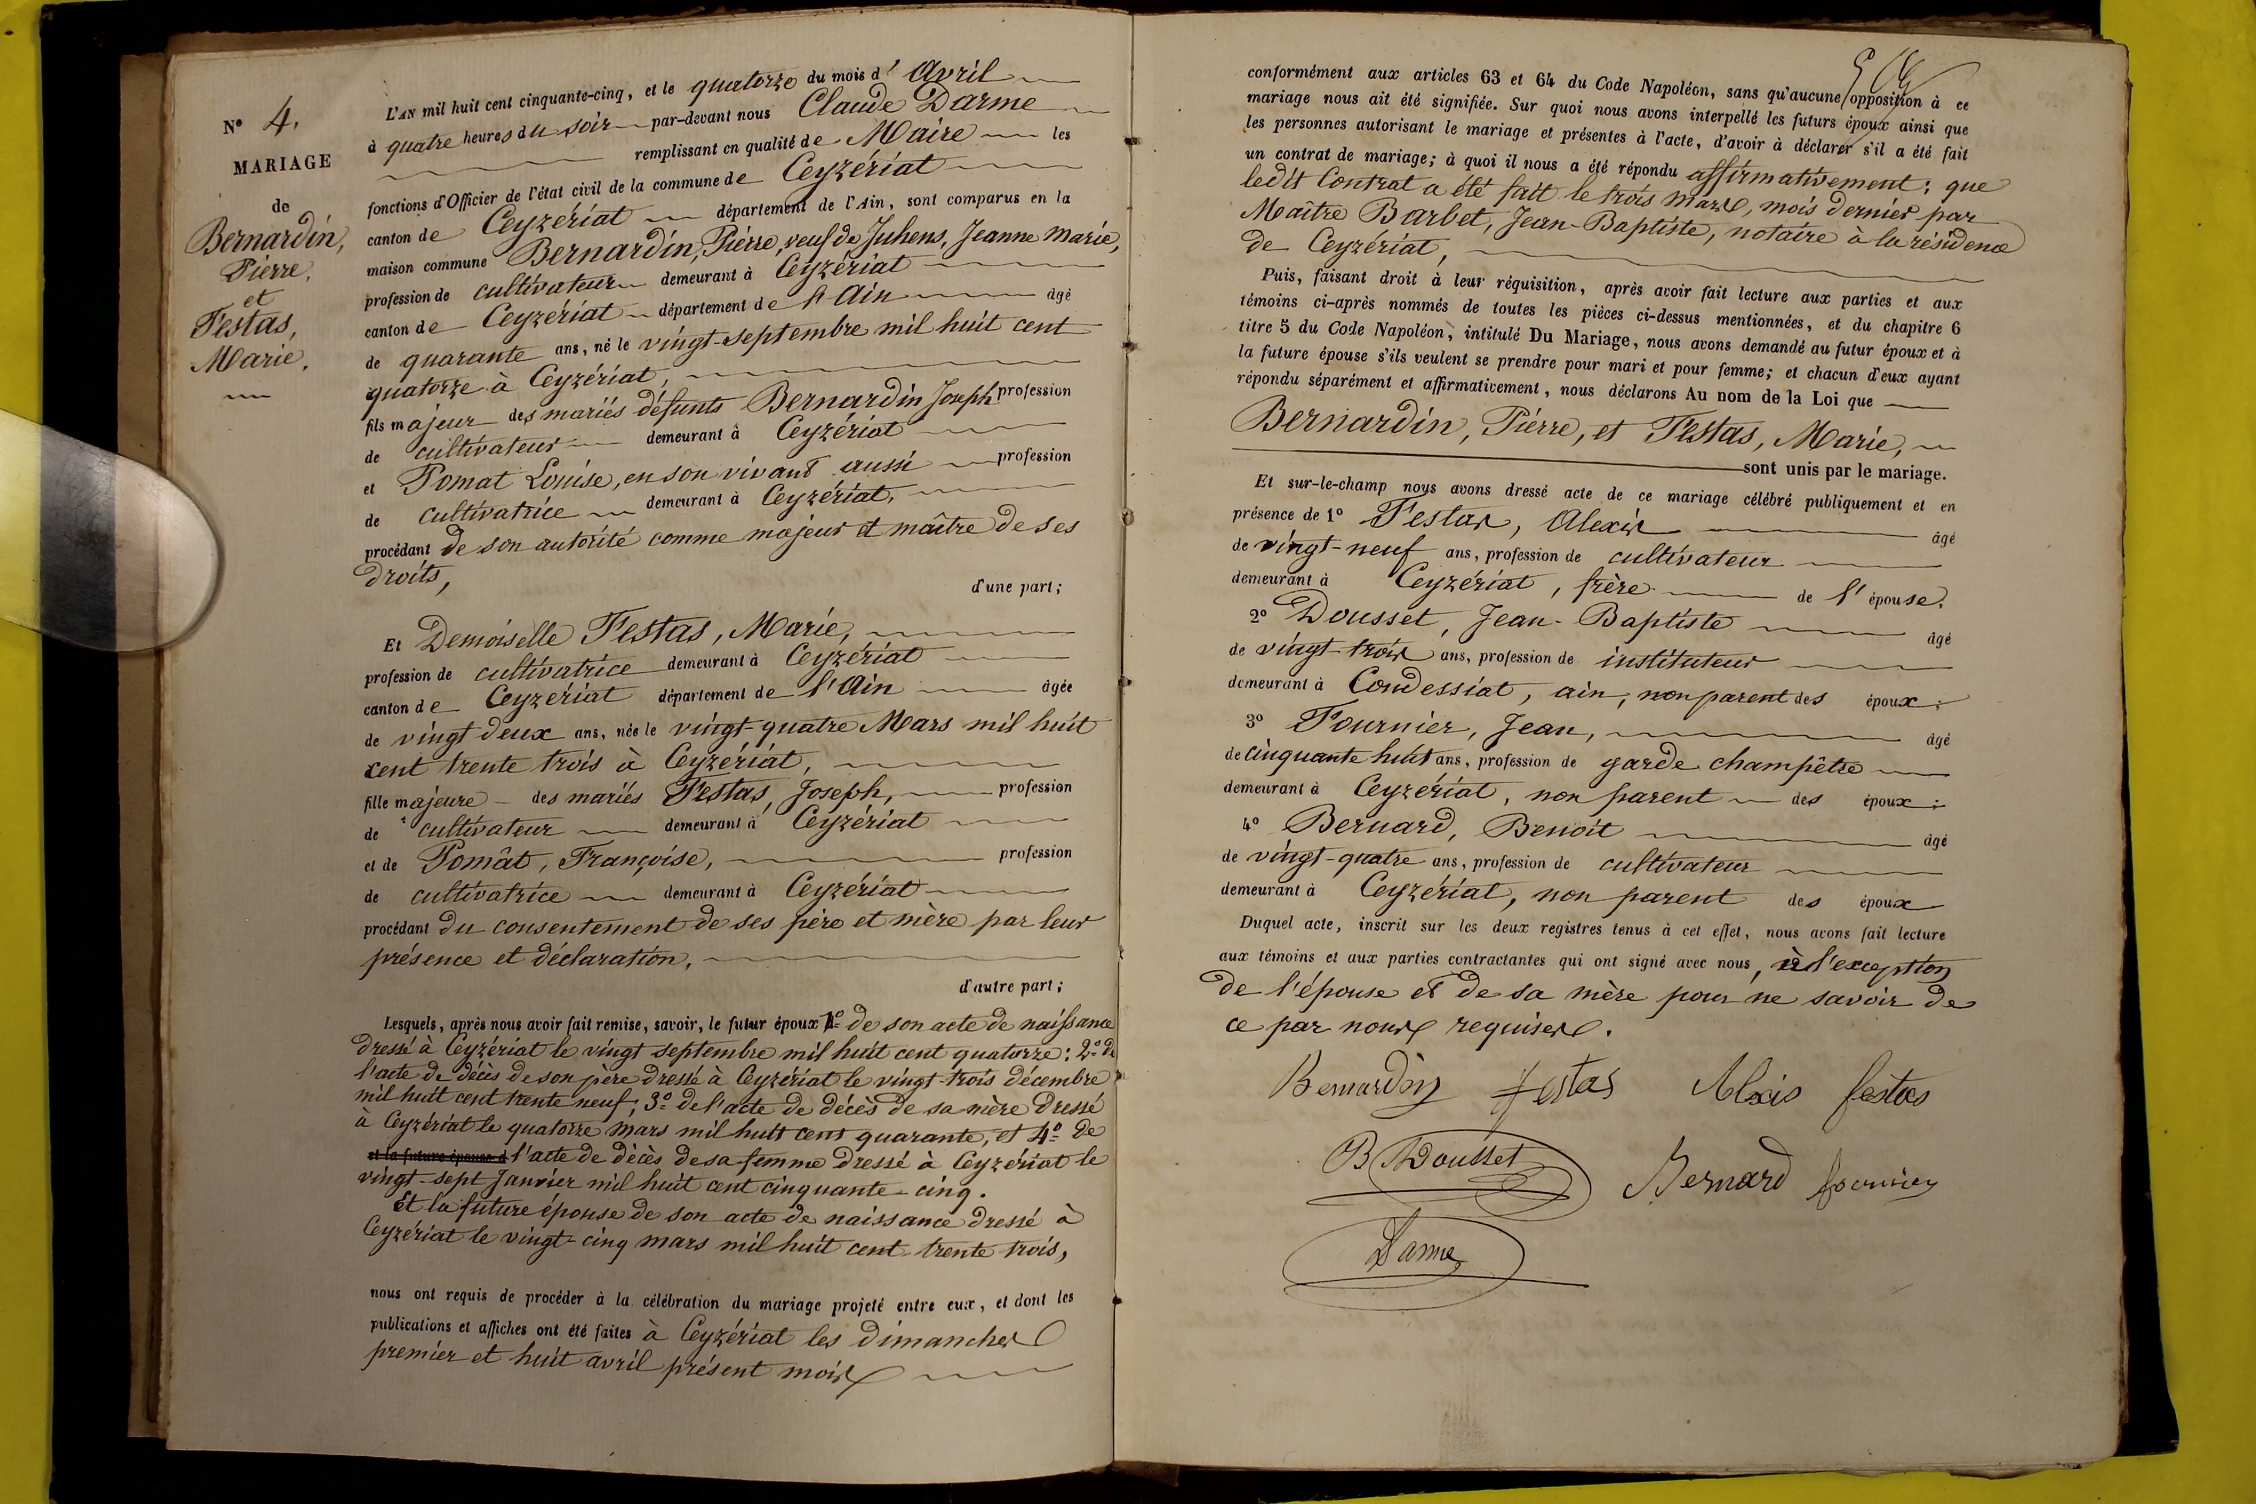 N° 4.
MARIAGE
de
Bernardin,
Pierre.
et
Festas,
Marie.
L'AN mil huit cent cinquante-cinq, et le quatorze du mois d'Avril
à quatre heures du soir par-devant nous Claude Darme
remplissant en qualité de Maire les
fonctions d'Officier de l'état civil de la commune de Ceyzériat
canton de Ceyzériat département de l'Ain, sont comparus en la
maison commune Bernardin, Pierre, veuf de Juhens, Jeanne Marie,
profession de cultivateur demeurant à Ceyzériat
canton de Ceyzériat département de l'Ain âgé
de quarante ans, né le vingt-septembre mil huit cent
quatorze à Ceyzériat,
fils majeur des mariés défunts Bernardin Joseph profession
de cultivateur demeurant à Ceyzériat
et Pomat Louise, en son vivant aussi profession
de cultivatrice demeurant à Ceyzériat,
procédant de son autorité comme majeur et maître de ses
droits,
d'une part;
Et Demoiselle Festas, Marie,
profession de cultivatrice demeurant à Ceyzériat
canton de Ceyzériat département de l'Ain âgée
de vingt deux ans, née le vingt-quatre Mars mil huit
cent trente trois à Ceyzériat,
fille majeure des mariés Festas, Joseph, profession
de cultivateur demeurant à Ceyzériat
et de Pomât, Françoise, profession
de cultivatrice demeurant à Ceyzériat
procédant du consentement de ses père et mère par leur
présence et déclaration,
d'autre part;
Lesquels, après nous avoir fait remise, savoir, le futur époux 1° de son acte de naissance
dressé à Ceyzériat le vingt septembre mil huit cent quatorze: 2° de
l'acte de décès de son père dressé à Ceyzériat le vingt-trois décembre
mil huit cent trente neuf; 3° de l'acte de décès de sa mère dressé
à Ceyzériat le quatorze mars mil huit cent quarante, et 4° de
et la future épouse d l'acte de décès de sa femme dressé à Ceyzériat le
vingt-sept Janvier mil huit cent cinquante-cinq.
Et la future épouse de son acte de naissance dressé à
Ceyzériat le vingt-cinq mars mil huit cent trente trois,
nous ont requis de procéder à la célébration du mariage projeté entre eux, et dont les
publications et affiches ont été faites à Ceyzériat les dimanches
premier et huit avril présent mois
conformément aux articles 63 et 64 du Code Napoléon, sans qu'aucune opposition à ce
mariage nous ait été signifiée. Sur quoi nous avons interpellé les futurs époux ainsi que
les personnes autorisant le mariage et présentes à l'acte, d'avoir à déclarer s'il a été fait
un contrat de mariage; à quoi il nous a été répondu affirmativement; que
ledit Contrat a été fait le trois mars, mois dernier par
Maître Barbet, Jean-Baptiste, notaire à la résidence
de Ceyzériat,
Puis, faisant droit à leur réquisition, après avoir fait lecture aux parties et aux
témoins ci-après nommés de toutes les pièces ci-dessus mentionnées, et du chapitre 6
titre 5 du Code Napoléon, intitulé Du Mariage, nous avons demandé au futur époux et à
la future épouse s'ils veulent se prendre pour mari et pour femme; et chacun d'eux ayant
répondu séparément et affirmativement, nous déclarons Au nom de la Loi que
Bernardin, Pierre, et Festas, Marie,
sont unis par le mariage.
Et sur-le-champ nous avons dressé acte de ce mariage célébré publiquement et en
présence de 1° Festas, Alexis âgé
de vingt-neuf ans, profession de cultivateur
demeurant à Ceyzériat, frère de l'épouse.
2° Dousset, Jean-Baptiste âgé
de vingt-trois ans, profession de instituteur
demeurant à Condessiat, ain, non parent des époux;
3° Fournier, Jean, âgé
de cinquante huit ans, profession de garde champêtre
demeurant à Ceyzériat, non parent des époux;
4° Bernard, Benoit âgé
de vingt-quatre ans, profession de cultivateur
demeurant à Ceyzériat, non parent des époux
Duquel acte, inscrit sur les deux registres tenus à cet effet, nous avons fait lecture
aux témoins et aux parties contractantes qui ont signé avec nous, à l'exception
de l'épouse et de sa mère pour ne savoir de
ce par nous requises.
Bernardin festas Alexis festas
B Dousset Bernard fournier
Darme